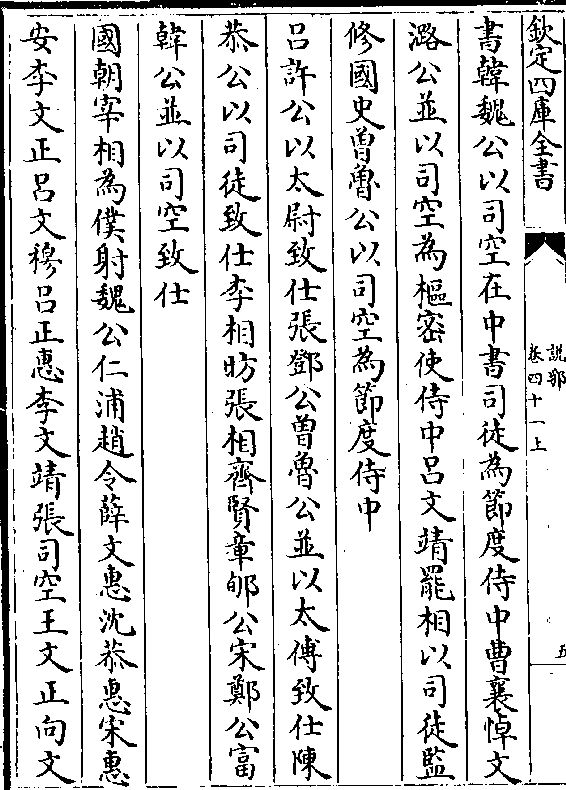 欽定四庫全書
說郛
卷四十一上
五
書韓魏公以司空在中書司徒為節度侍中曹襄悼文
潞公並以司空為樞密使侍中呂文靖罷相以司徒監
修國史曽魯公以司空為節度侍中
呂許公以太尉致仕張鄧公曽魯公並以太傅致仕陳
恭公以司徒致仕李相昉張相齊賢章郇公宋鄭公富
韓公並以司空致仕
國朝宰相為僕射魏公仁浦趙令薛文惠沈恭惠宋惠
安李文正呂文穆呂正惠李文靖張司空王文正向文